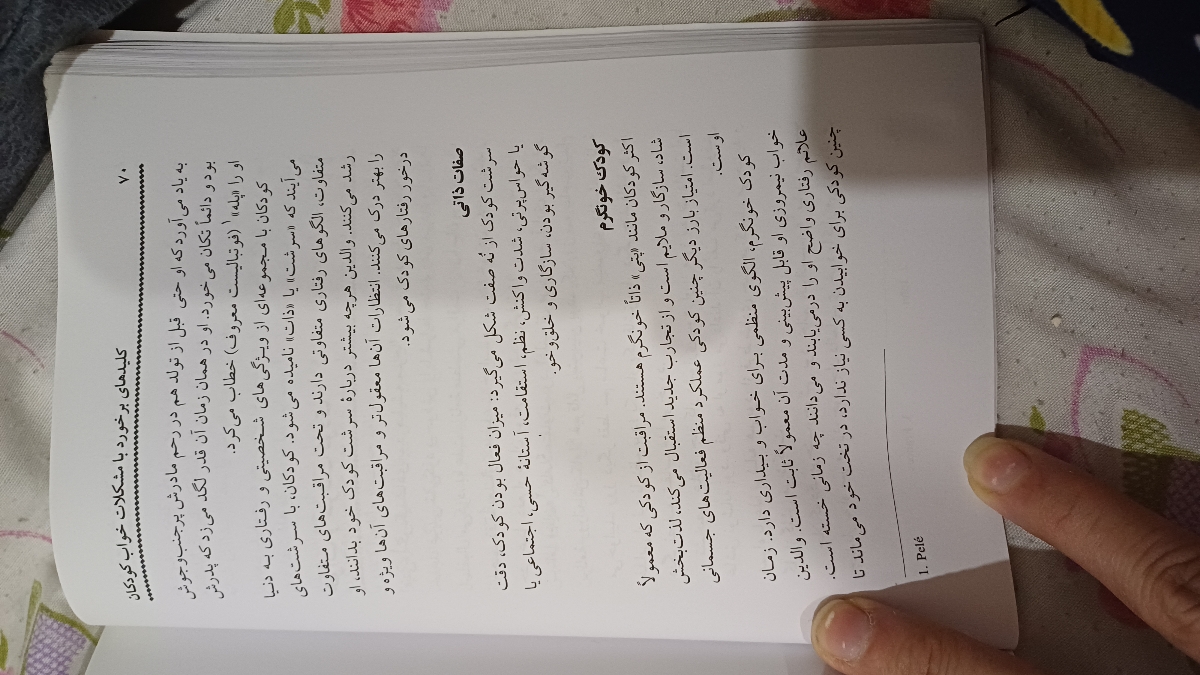 ۷۰ کلیدهای برخورد با مشکلات خواب کودکان
به یاد می‌آورد که او حتی قبل از تولد هم در رحم مادرش پرجنب‌وجوش
بود و دائماً تکان می‌خورد. او در همان زمان آن قدر لگد می‌زد که پدرش
او را «پله»۱ (فوتبالیست معروف) خطاب می‌کرد.
کودکان با مجموعه‌ای از ویژگی‌های شخصیتی و رفتاری به دنیا
می‌آیند که «سرشت» یا «ذات» نامیده می‌شود. کودکان، با سرشت‌های
متفاوت، الگوهای رفتاری متفاوتی دارند و تحت مراقبت‌های متفاوت
رشد می‌کنند. والدین هرچه بیشتر دربارهٔ سرشت کودک خود بدانند، او
را بهتر درک می‌کنند. انتظارات آن‌ها معقول‌تر و مراقبت‌های آن‌ها ویژه و
درخور رفتارهای کودک می‌شود.
صفات ذاتی
سرشت کودک از نُه صفت شکل می‌گیرد: میزان فعال بودن کودک، دقت
یا حواس‌پرتی، شدت واکنش، نظم، استقامت، آستانهٔ حسی، اجتماعی یا
گوشه‌گیر بودن، سازگاری و خلق‌وخو.
کودک خونگرم
اکثر کودکان مانند «بتی» ذاتاً خونگرم هستند. مراقبت از کودکی که معمولاً
شاد، سازگار و ملایم است و از تجارب جدید استقبال می‌کند، لذت‌بخش
است. امتیاز بارز دیگر چنین کودکی عملکرد منظم فعالیت‌های جسمانی
اوست.
کودک خونگرم، الگوی منظمی برای خواب و بیداری دارد. زمان
خواب نیمروزی او قابل پیش‌بینی و مدت آن معمولاً ثابت است. والدین
علائم رفتاری واضح او را درمی‌یابند و می‌دانند چه زمانی خسته است.
چنین کودکی برای خوابیدن به کسی نیاز ندارد، در تخت خود می‌ماند تا
1. Pelé